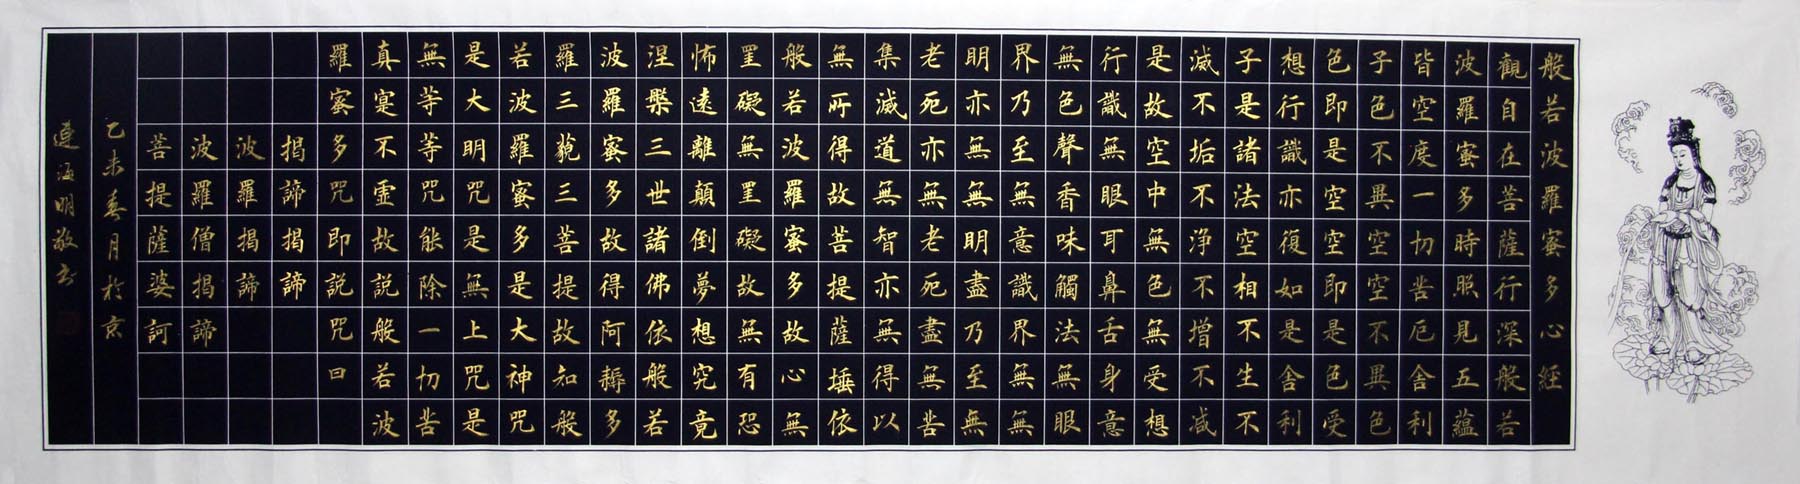 般若波羅蜜多心經
觀自在菩薩行深般若
波羅蜜多時照見五蘊
皆空度一切苦厄舍利
子色不異空空不異色
色即是空空即是色受
想行識亦復如是舍利
子是諸法空相不生不
滅不垢不净不增不减
是故空中無色無受想
行識無眼耳鼻舌身意
無色聲香味觸法無眼
界乃至無意識界無無
明亦無無明盡乃至無
老死亦無老死盡無苦
集滅道無智亦無得以
無所得故菩提薩埵依
般若波羅蜜多故心無
罣礙無罣礙故無有恐
怖遠離顛倒夢想究竟
涅槃三世諸佛依般若
波羅蜜多故得阿耨多
羅三藐三菩提故知般
若波羅蜜多是大神咒
是大明咒是無上咒是
無等等咒能除一切苦
真寔不虛故説般若波
羅蜜多咒即説咒曰
揭諦揭諦
波羅揭諦
波羅僧揭諦
菩提薩婆訶
乙未春月於京
連海明敬书